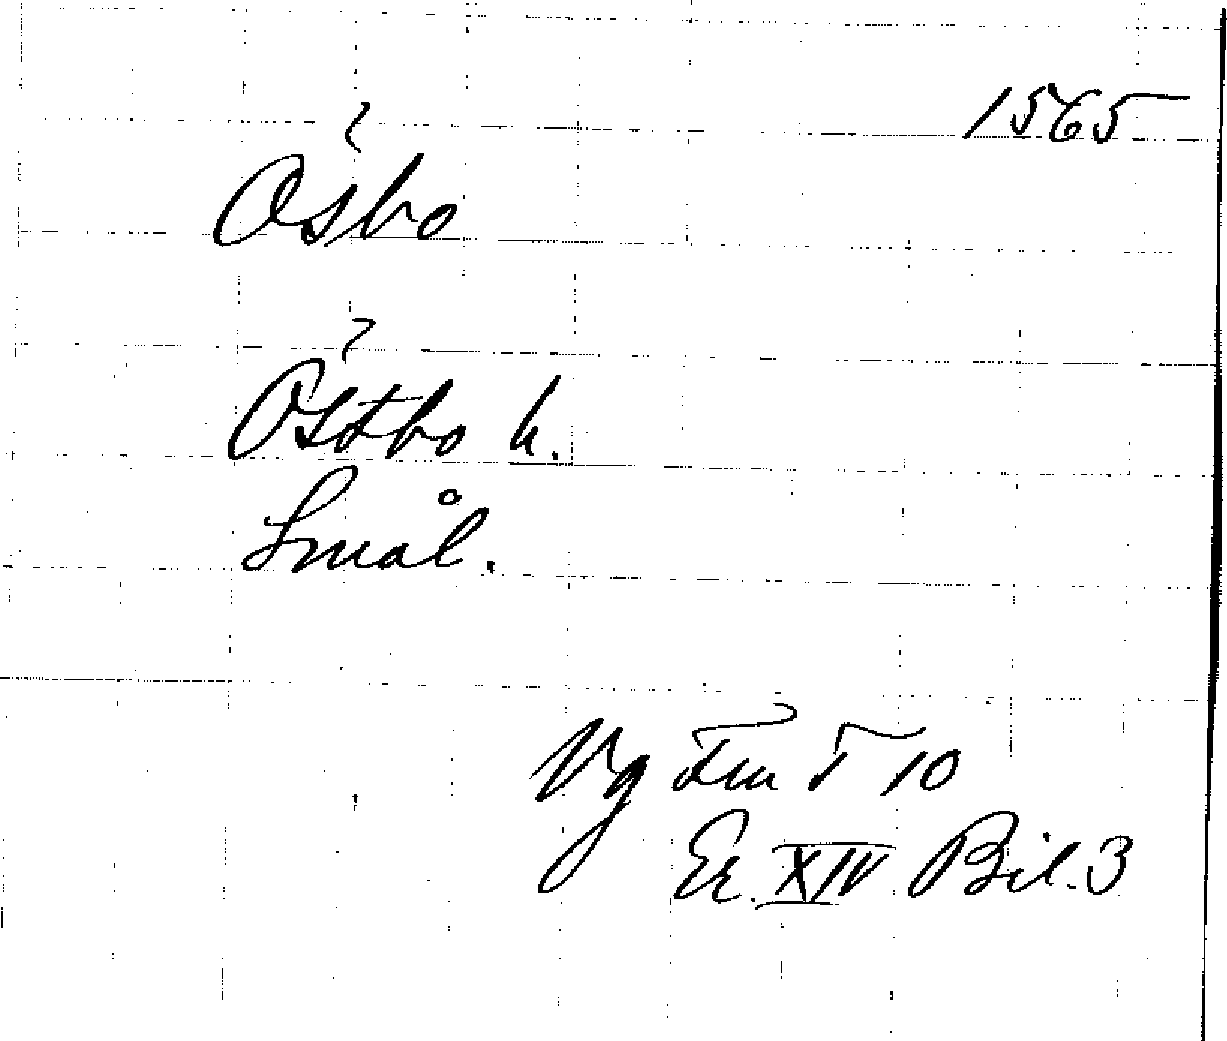 1565
Ösbo
Östbo h.
Smål.
Vg Tm T 10
Er. XIV Bil. 3